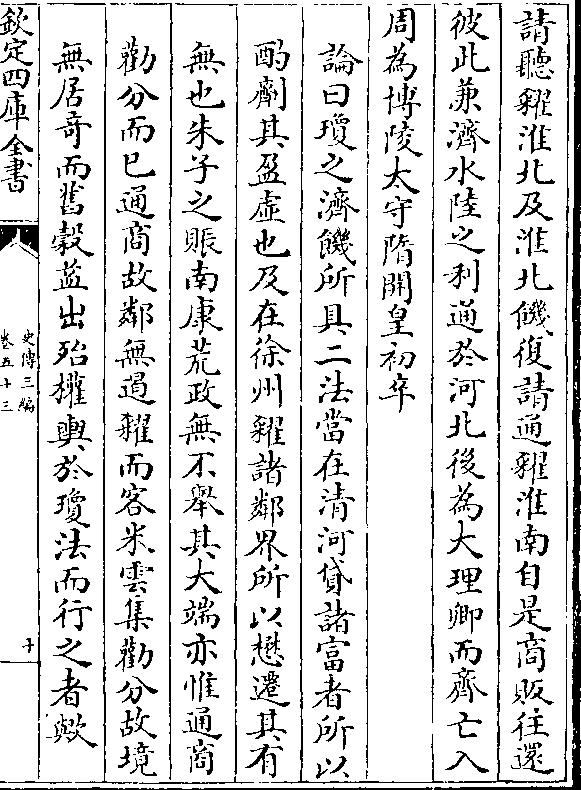 請聽糴淮北及淮北饑復請通糴淮南自是商販往還
彼此兼濟水陸之利通於河北後為大理卿而齊亡入
周為博陵太守隋開皇初卒
論曰瓊之濟饑所具二法當在清河貸諸富者所以
酌劑其盈虛也及在徐州糴諸鄰界所以懋遷其有
無也朱子之賑南康荒政無不舉其大端亦惟通商
勸分而已通商故鄰無遏糴而客米雲集勸分故境
無居奇而舊穀益出殆權輿於瓊法而行之者歟
欽定四庫全書
史傳三編
卷五十三
十